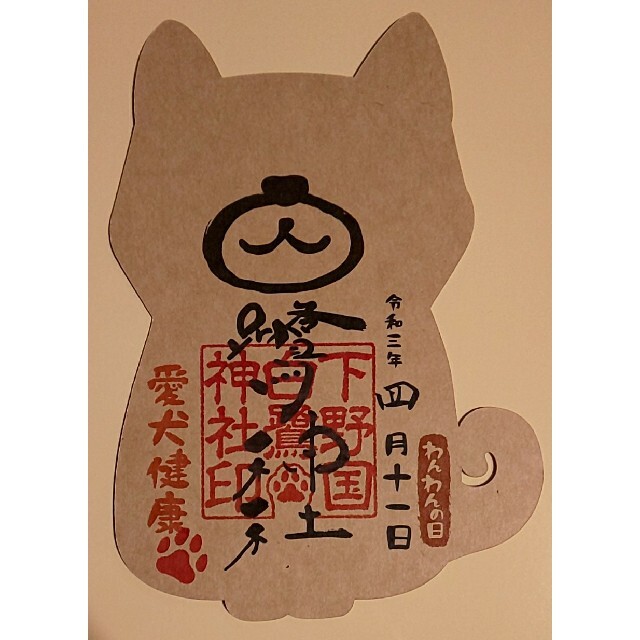 令和三年
四月十一日
わんわんの日
下野国
白鷺
神社印
愛犬健康